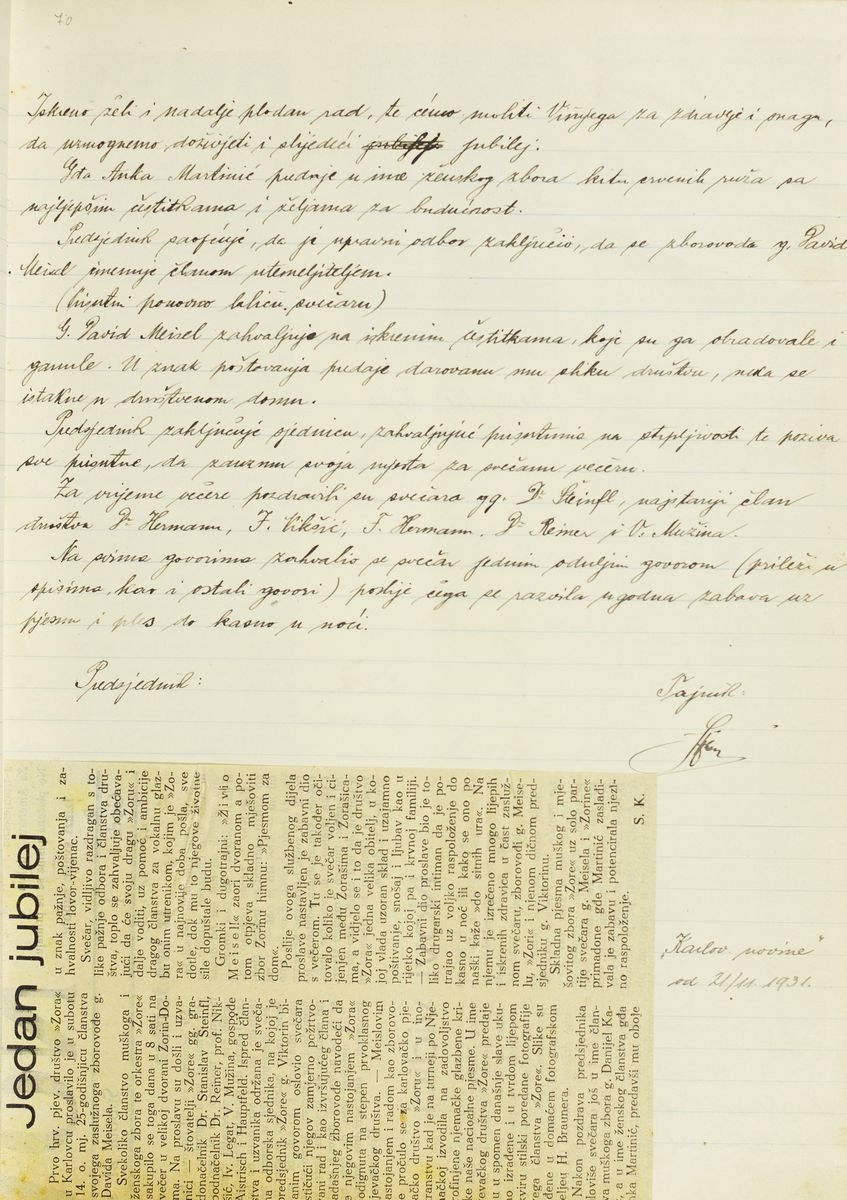 70
Iskreno želi i nadalje plodan rad, te ćemo moliti Višnjega za zdravlje i snagu,
da uzmognemo doživjeti i slijedeći jubilej.
Gđa Anka Martinić predaje u ime ženskog zbora kitu crvenih ruža sa
najljepšim čestitkama i željama za budućnost.
Predsjednik saopćuje, da je upravni odbor zaključio, da se zborovođa g. David
Meisel imenuje članom utemeljiteljem.
(Prisutni ponovno kliču svečaru)
G. David Meisel zahvaljuje na iskrenim čestitkama, koje su ga obradovale i
ganule. U znak poštovanja predaje darovanu mu sliku društvu, neka se
istakne u društvenom domu.
Predsjednik zaključuje sjednicu, zahvaljujuć prisutnima na strpljivosti te poziva
sve prisutne, da zauzmu svoja mjesta za svečanu večeru.
Za vrijeme večere pozdravili su svečara gg. Dr Šteinfl, najstariji član
društva Dr Hermann, F. Hermann, Dr Reiner i V. Mužina.
Na svima govorima zahvalio se svečar jednim oduljim govorom (prileži u
spisima, kao i ostali govori) poslije čega se razvila ugodna zabava uz
pjesmu i ples do kasno u noći.
Predsjednik:
Tajnik:
Jedan jubilej
Prvo hrv. pjev. društvo »Zora«
u Karlovcu proslavilo je u subotu
14. o. mj. 25-godišnjicu članstva
svojega zaslužnoga zborovođe g.
Davida Meisela.
Svekoliko članstvo muškoga i
ženskoga zbora te orkestra »Zore«
sakupilo se toga dana u 8 sati na
večer u velikoj dvorani Zorin-Do-
ma. Na proslavu su došli i uzva-
nici — štovatelji »Zore« gg. gra-
donačelnik Dr. Stanislav Šteinfl,
podnačelnik Dr. Reiner, prof. Nik-
šić, Iv. Legat, V. Mužina, gospođe
Aistrich i Hauptfeld. Ispred član-
stva i uzvanika održana je sveča-
na odborska sjednika, na kojoj je
predsjednik »Zore« g. Viktorin bi-
ranim govorom oslovio svečara
ističući njegov zamjerno požrtvo-
vani rad kao izvršujućeg člana i
sadašnjeg zborovođe navodeći da
je njegovim nastojanjem »Zora«
podignuta na stepen prvoklasnog
pjevačkog društva. Meislovim
nastojanjem i radom kao zborovo-
đe pročulo se za karlovačko pje-
vačko društvo »Zoru« i u ino-
zemstvu kad je na turneji po Nje-
mačkoj izvodila na zadovoljstvo
profinjene njemačke glazbene kri-
tike naše nacioalne pjesme. U ime
pjevačkog društva »Zore« predaje
mu u spomen današnje slave uku-
sno izrađene i u tvrdom lijepom
okviru stilski poređane fotografije
svega članstva »Zore«. Slike su
rađene u domaćem fotografskom
ateljeu H. Braunera.
Nakon pozdrava predsjednika
osloviše svečara još u ime član-
stva muškoga zbora g. Danijel Ka-
, a u ime ženskog članstva gđa
Anka Martinić, predavši mu obole
u znak pažnje, poštovanja i za-
hvalnosti lovor-vijenac.
Svečar, vidljivo razdragan s to-
like pažnje odbora i članstva dru-
štva, toplo se zahvaljuje obećava-
jući da će svoju dragu »Zoru« i
dalje voditi, uz pomoć i ambicije
dragog članstva za vokalnu glaz-
bu onim utrenikom kojim je »Zo-
ra« u najnovije doba pošla, sve
dotle, dok mu to njegove životne
sile dopuštale budu.
Gromki i dugotrajni: »Živio
Meisel!« zaori dvoranom a po-
tom otpjeva skladno mješoviti
zbor Zorinu himnu: »Pjesmom za
dom«.
Poslije ovoga službenog dijela
proslave nastavljen je zabavni dio
s večerom. Tu se je također oči-
tovalo koliko je svečar voljen i ci-
jenjen među Zorašima i Zorašica-
ma, a vidjelo se i to da je društvo
»Zora« jedna velika obitelj, u ko-
joj vlada uzoran sklad i uzajamno
poštivanje, snošaj i ljubav kao u
rijetko kojoj pa i krvnoj familiji.
— Zabavni dio proslave bio je to-
liko drugarski intiman da je po-
trajao uz voljko raspoloženje do
kasna u noć ili kako se ono po
naški kaže »do sitnih ura«. Na
njemu je izrečeno mnogo lijepih
i iskrenih zdravica u čast zasluž-
nom svečaru, zborovođi g. Meise-
lu, »Zori« i njenom dičnom pred-
sjedniku g. Viktorinu.
Skladna pjesma muškog i mje-
šovitog zbora »Zore« uz solo par-
tije svečara g. Meisela i »Zorine«
primadone gđe Martinić zasladi-
vala je zabavu i potencirala njezi-
no raspoloženje.
S. K.
„Karlov. novine"
od 21/11. 1931.